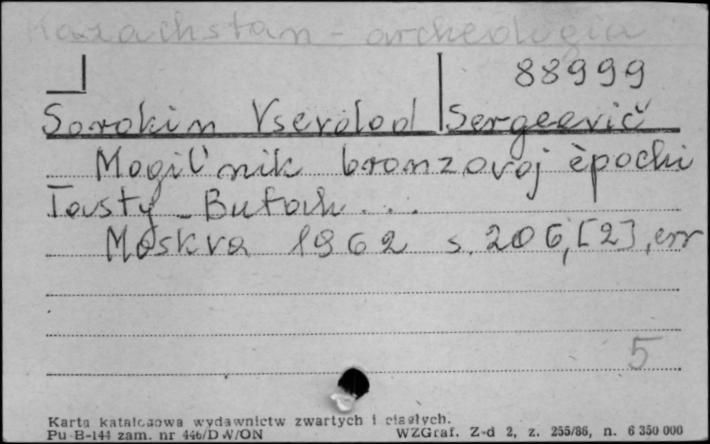 Kazachstan - archeologia
88999
Sorokin Vsevolod Sergeevič
Mogil'nik bronzovoj èpochi
Tasty-Butak...
Moskva 1962 s. 206, [2], err
5
Karta katalogowa wydawnictw zwartych i ciągłych.
Pu-B-144 zam. nr 446/DW/ON WZGraf. Z-d 2, z. 255/86, n. 6 350 000